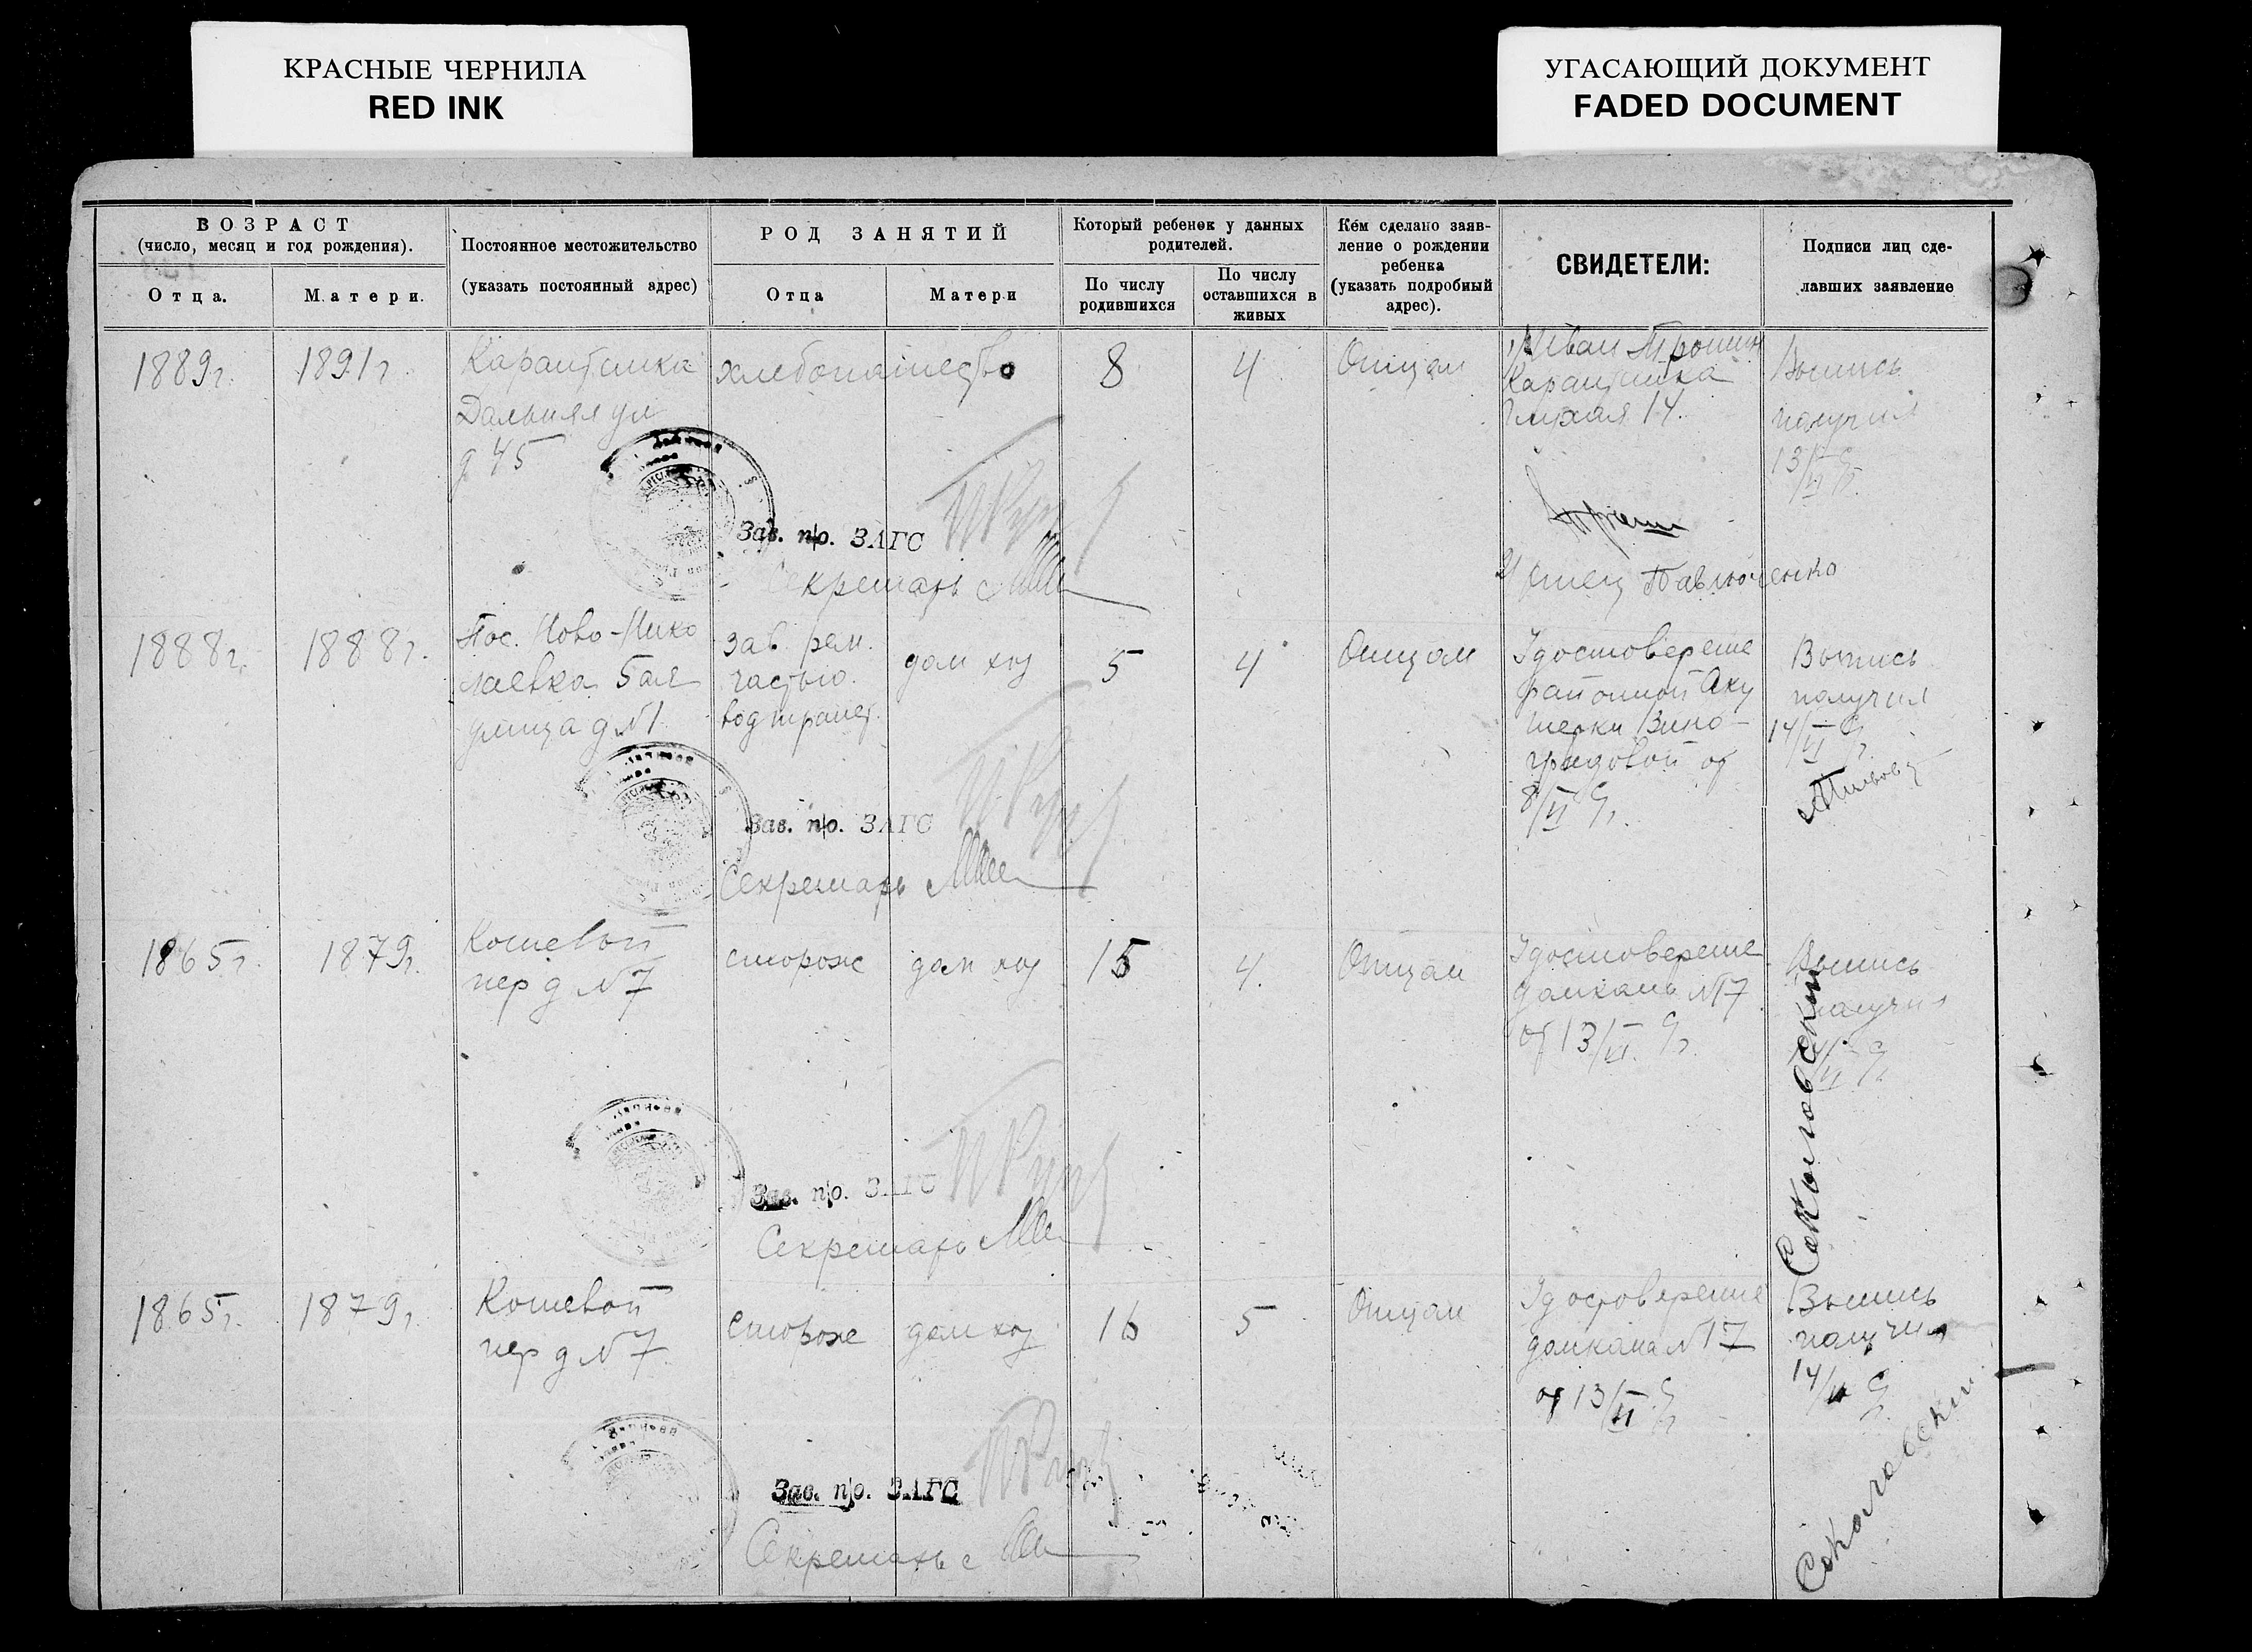 КРАСНЫЕ ЧЕРНИЛА
RED INK
УГАСАЮЩИЙ ДОКУМЕНТ
FADED DOCUMENT
ВОЗРАСТ
(число, месяц и год рождения).
Отца.
Матери.
Постоянное местожительство
(указать постоянный адрес)
РОД ЗАНЯТИЙ
Отца
Матери
Который ребенок у данных
родителей.
По числу
родившихся
По числу
оставшихся в
живых
Кем сделано заяв-
ление о рождении
ребенка
(указать подробный
адрес).
СВИДЕТЕЛИ:
Подписи лиц сде-
лавших заявление
1889г.
1891г.
Карантинка
Дальняя ул
д 45
хлебопашество
8
4
Отцом
1/ Иван Трошин
Карантинка
14.
Выпись
получил
13/VI
Зав. п/о. ЗАГС
Секретарь
2/ отец Павлюченко
1888г.
1888г.
Пос. Ново-Нико
лаевка 5ая
улица д №1
Зав. рем.
частью
водтрансп.
дом хоз
5
4
Отцом
Удостоверение
районной Аку
шерки Вино-
градовой от
8/VI
Выпись
получил
14/VI
Зав. п/о. ЗАГС
Секретарь
1865г.
1879г.
Кошевой
пер д №7
сторож
дом хоз
15
4.
Отцом
Удостоверение
домкома №17
от 13/VI.
Выпись
получил
Соколовский
Зав. п/о. ЗАГС
Секретарь
1865г.
1879г.
Кошевой
пер д №7
Сторож
дом хоз
16
5
Отцом
Удостоверение
домкома №17
от 13/VI
Выпись
получил
14/VI
Соколовский
Зав. п/о. ЗАГС
Секретарь